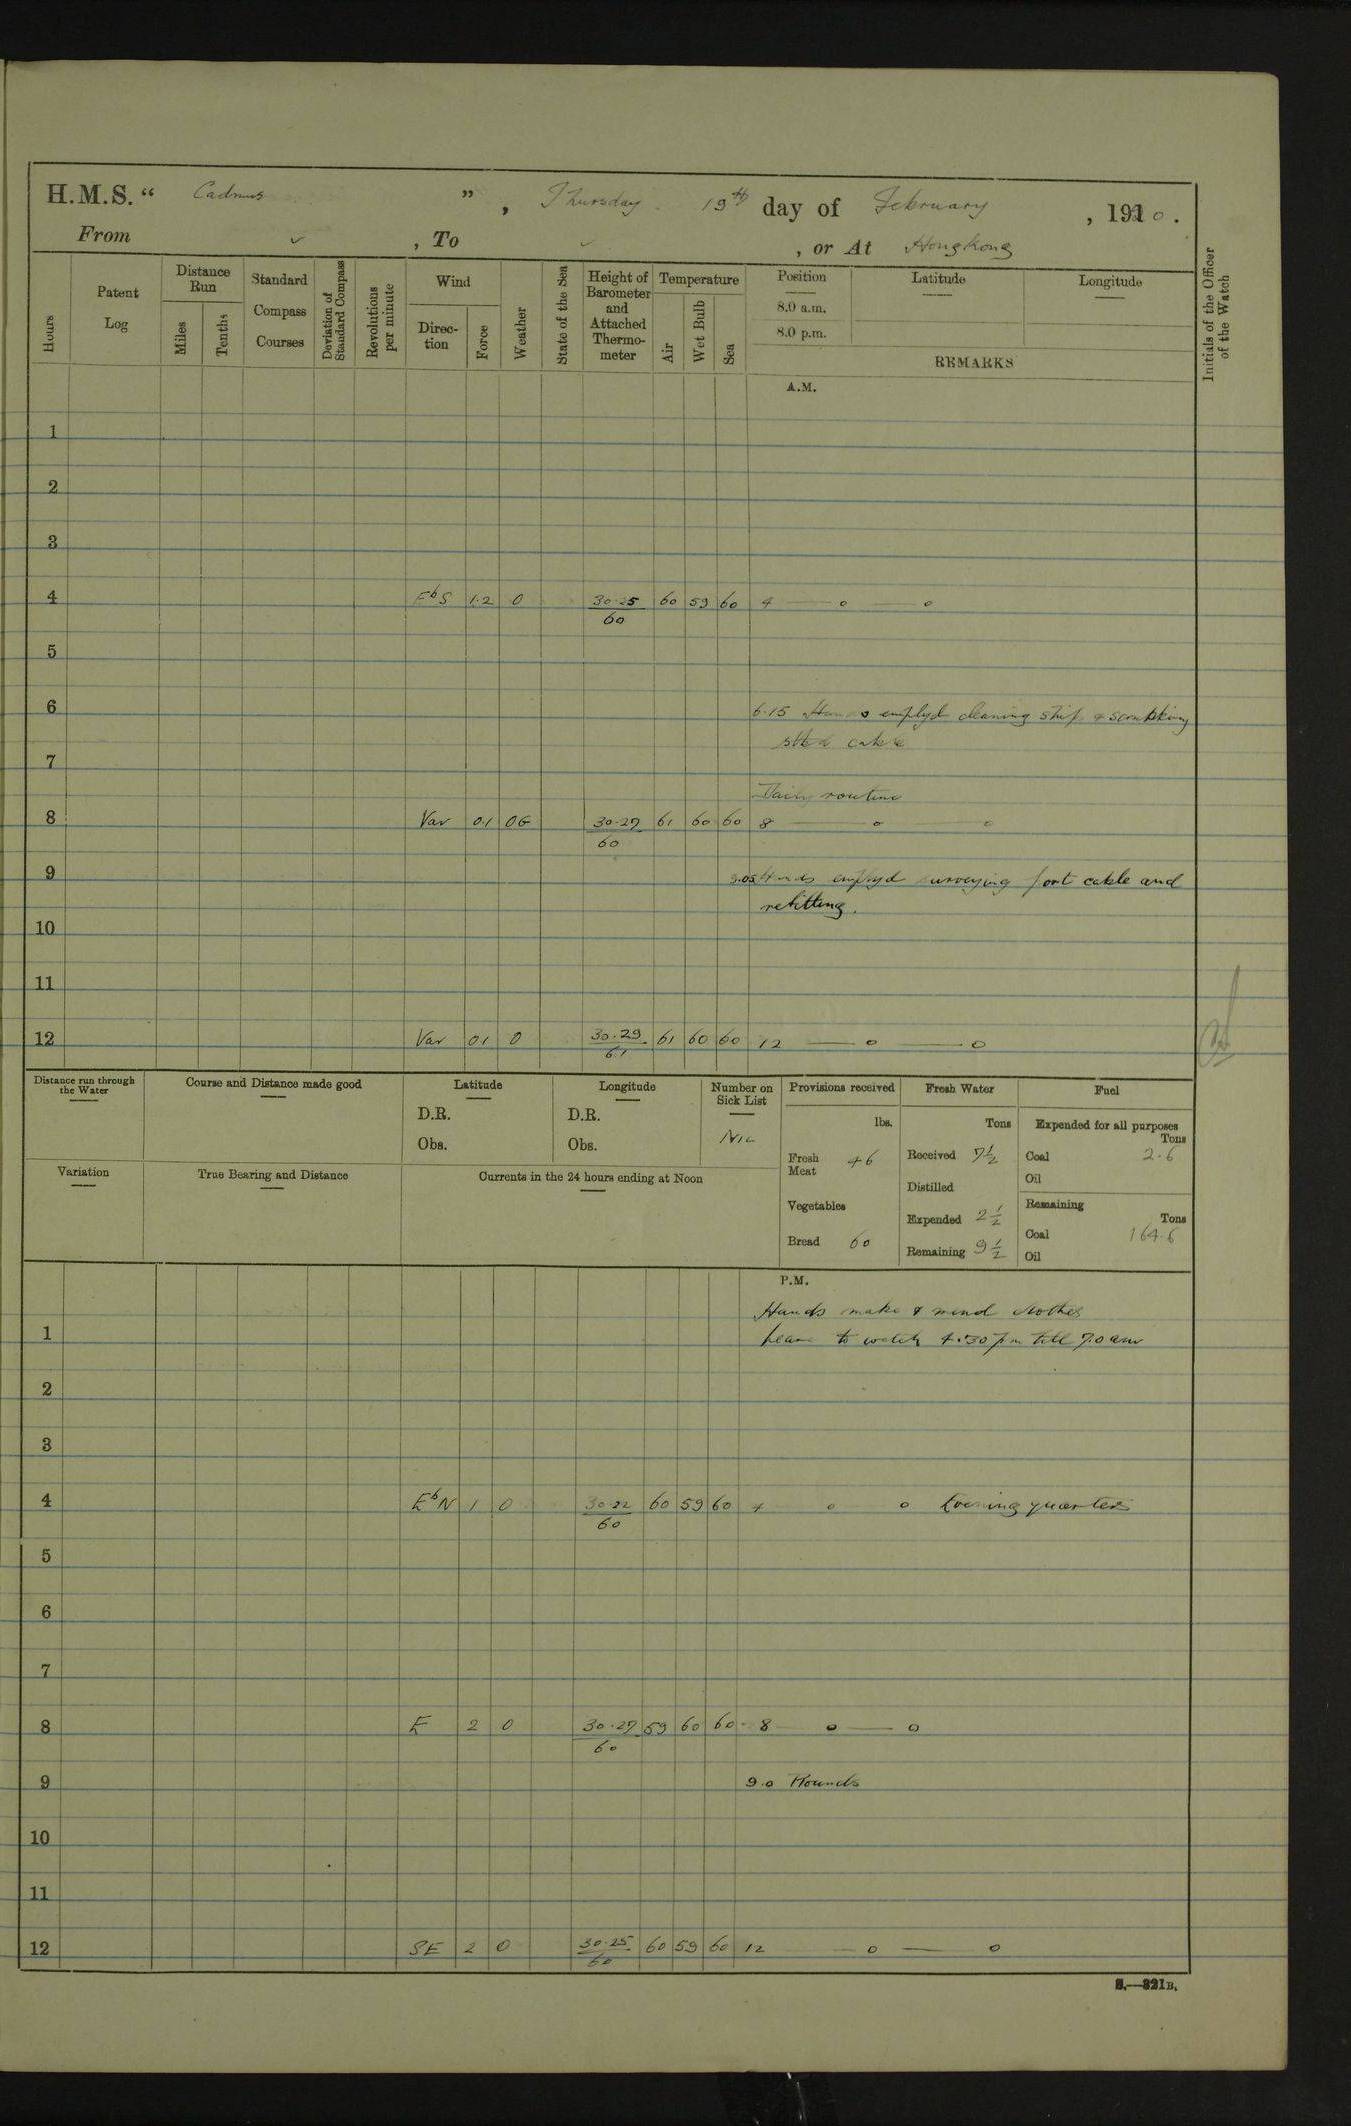 H.M.S. “ Cadmus ” , Thursday 19th day of February , 1920 .
From ✓ , To ✓ , or At Hongkong
Hours
Patent Log
Distance Run
Miles
Tenths
Standard Compass Courses
Deviation of Standard Compass
Revolutions per minute
Wind
Direc-tion
Force
Weather
State of the Sea
Height of Barometer and Attached Thermo-meter
Temperature
Air
Wet Bulb
Sea
Position
8.0 a.m.
8.0 p.m.
Latitude
Longitude
REMARKS
Initials of the Officer of the Watch
A.M.
1
2
3
4 EbS 1.2 O 30.25/60 60 59 60 4 — o — o
5
6 6.15 Hands employd cleaning ship & scrubbing
cable
7
Daily routine
8 Var 0.1 OG 30.27/60 61 60 60 8 — o o
9 9.05 Hands employd surveying port cable and
refitting.
10
11
12 Var 0.1 O 30.29/61 61 60 60 12 — o — o
Distance run through the Water
Course and Distance made good
Latitude
D.R.
Obs.
Longitude
D.R.
Obs.
Number on Sick List
Nil
Provisions received
lbs.
Fresh Meat 46
Vegetables
Bread 60
Fresh Water
Tons
Received 7½
Distilled
Expended 2½
Remaining 9½
Fuel
Expended for all purposes
Tons
Coal 2.6
Oil
Remaining
Tons
Coal 164.6
Oil
Variation
True Bearing and Distance
Currents in the 24 hours ending at Noon
P.M.
Hands make & mend clothes
1 Leave to watch 4.30 pm till 7.0 am
2
3
4 EbN 1 O 30.22/60 60 59 60 4 o o Evening quarters
5
6
7
8 E 2 O 30.27/60 59 60 60 8 — o — o
9 9.0 Rounds
10
11
12 SE 2 O 30.25/60 60 59 60 12 — o — o
S.—321B.